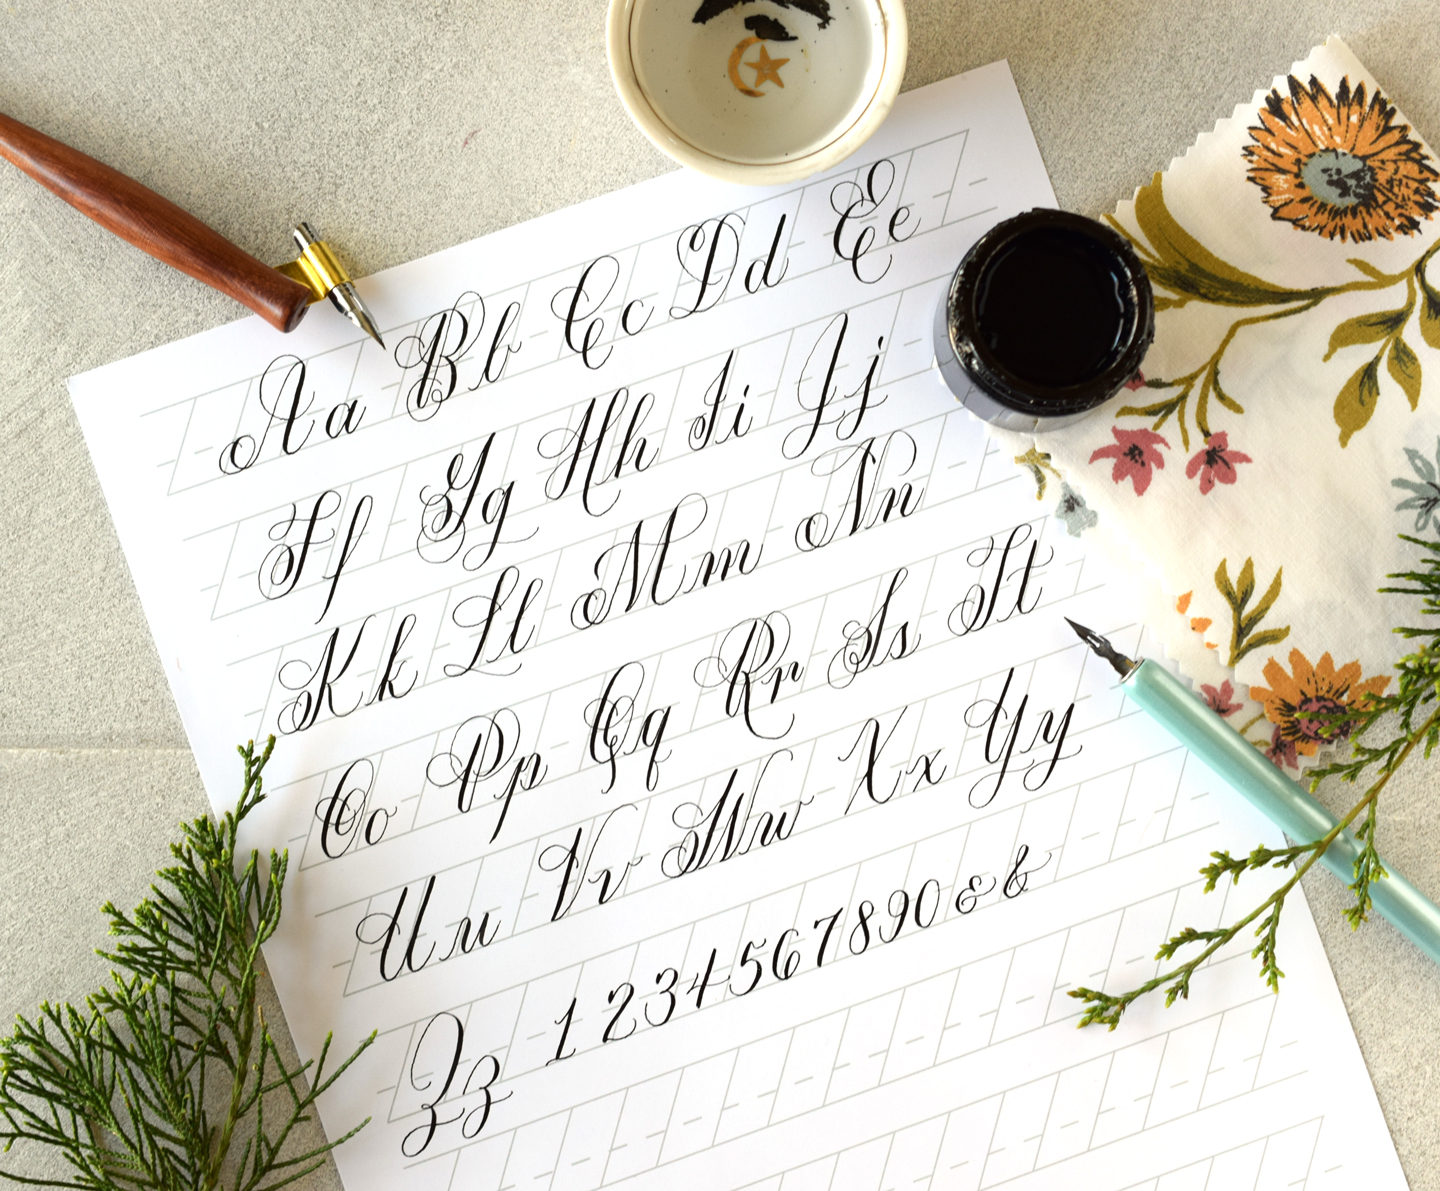 Aa Bb Cc Dd Ee
Ff Gg Hh Ii Jj
Kk Ll Mm Nn
Oo Pp Qq Rr Ss Tt
Uu Vv Ww Xx Yy
Zz 1234567890 & &